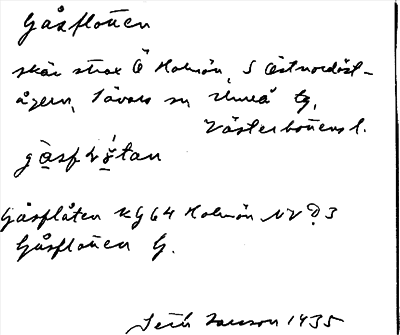 Gåsflotten
skär strax Ö Holmön, S Östnordöst-
ågern, Sävars sn Umeå tg,
Västerbottens l.
gåsflŏ́tan
Gåsflåten KG64 Holmön NV D3
Gåsflotten G.
Seth Jansson 1935